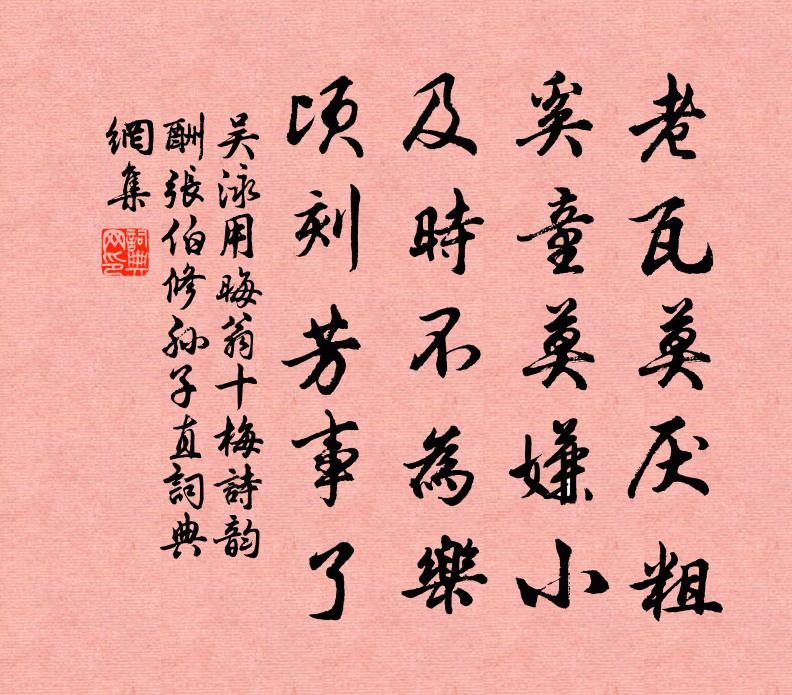 老瓦莫厌粗
奚童莫嫌小
及時不為樂
頃刻芳事了
吴泳用晦翁十梅詩韵
酬張伯修孙子直詞典
網集
詞典
网印